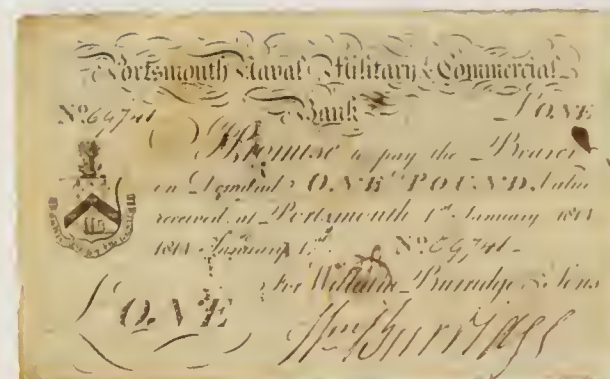 Portsmouth Naval Military & Commercial
Bank
No. 69741 ONE
I Promise to pay the Bearer
on Demand ONE POUND, Value
received at Portsmouth 1st January
January 1st No. 69741
For William Burridge & Sons
ONE
Wm Burridge